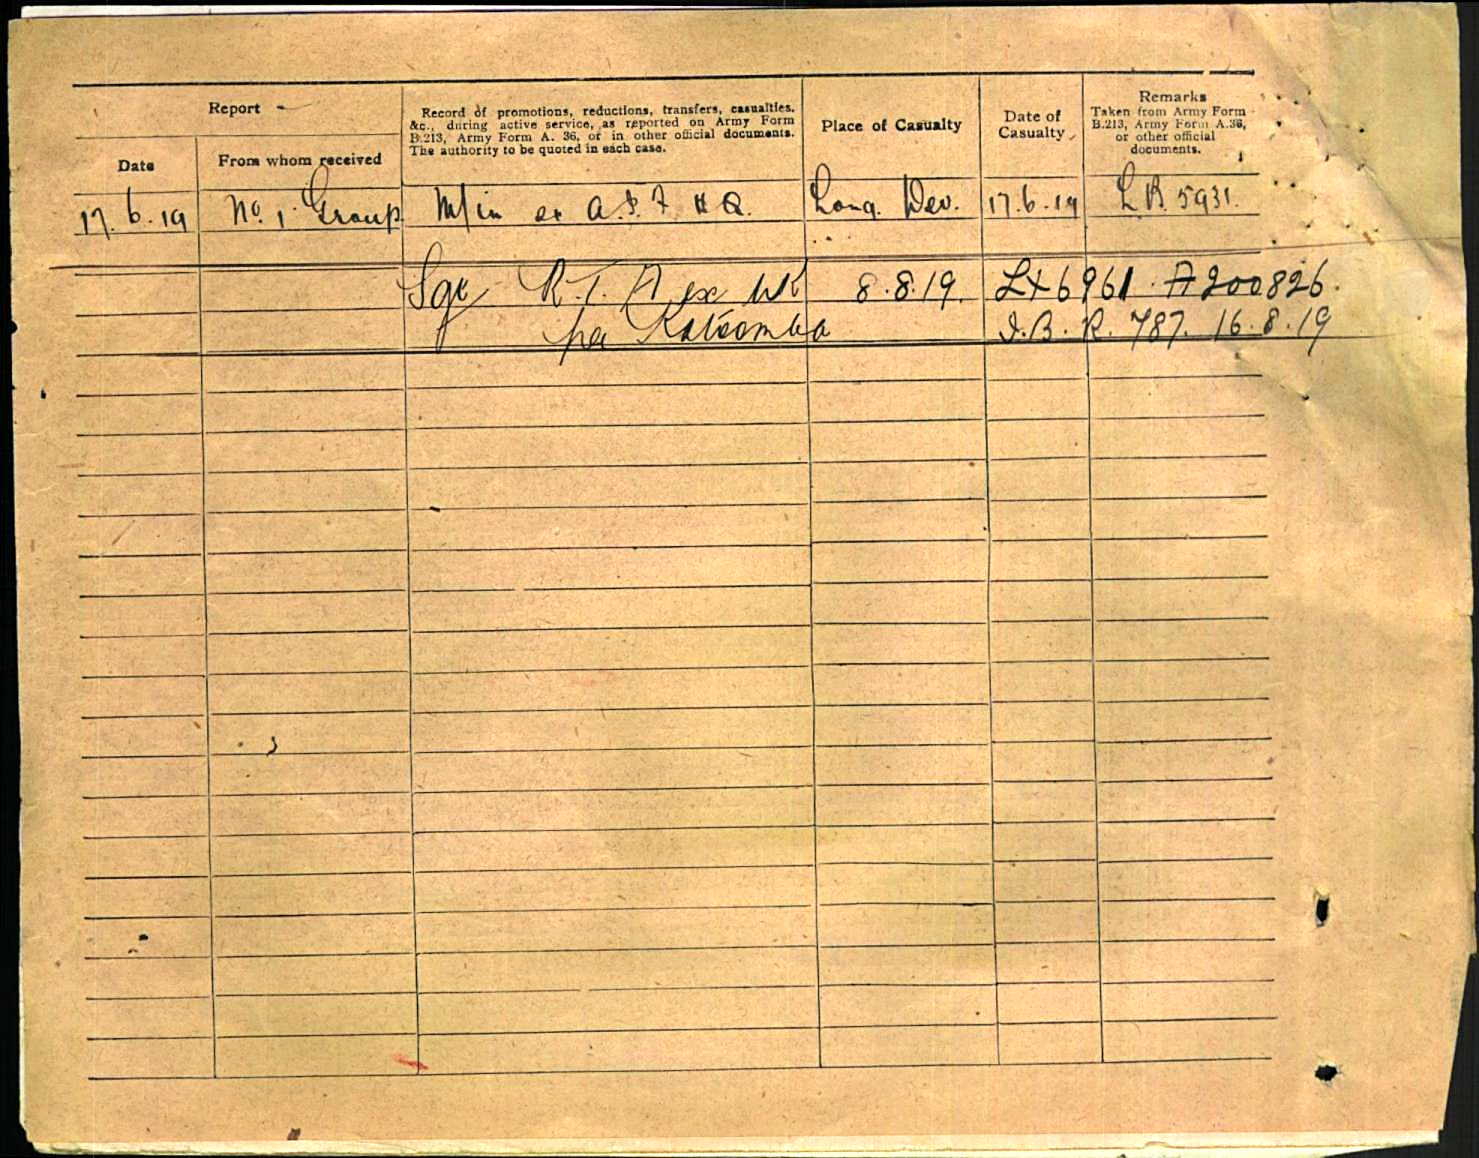 Report
Date
From whom received
Record of promotions, reductions, transfers, casualties,
&c., during active service, as reported on Army Form
B.213, Army Form A. 36, or in other official documents.
The authority to be quoted in each case.
Place of Casualty
Date of
Casualty
Remarks
Taken from Army Form
B.213, Army Form A.36,
or other official
documents.
17.6.19 No. 1 Group M/in ex A.I.F. H Q. Long. Dev. 17.6.19 L B. 5931.
Sgt R.T.A ex UK 8.8.19. LX6961. A200826.
per Katoomba I.B.R. 787. 16.8.19